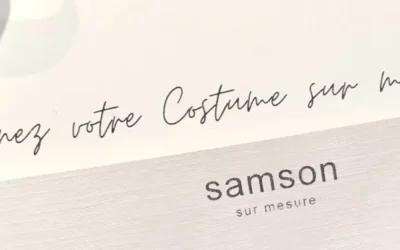 votre Costume sur
samson
sur mesure